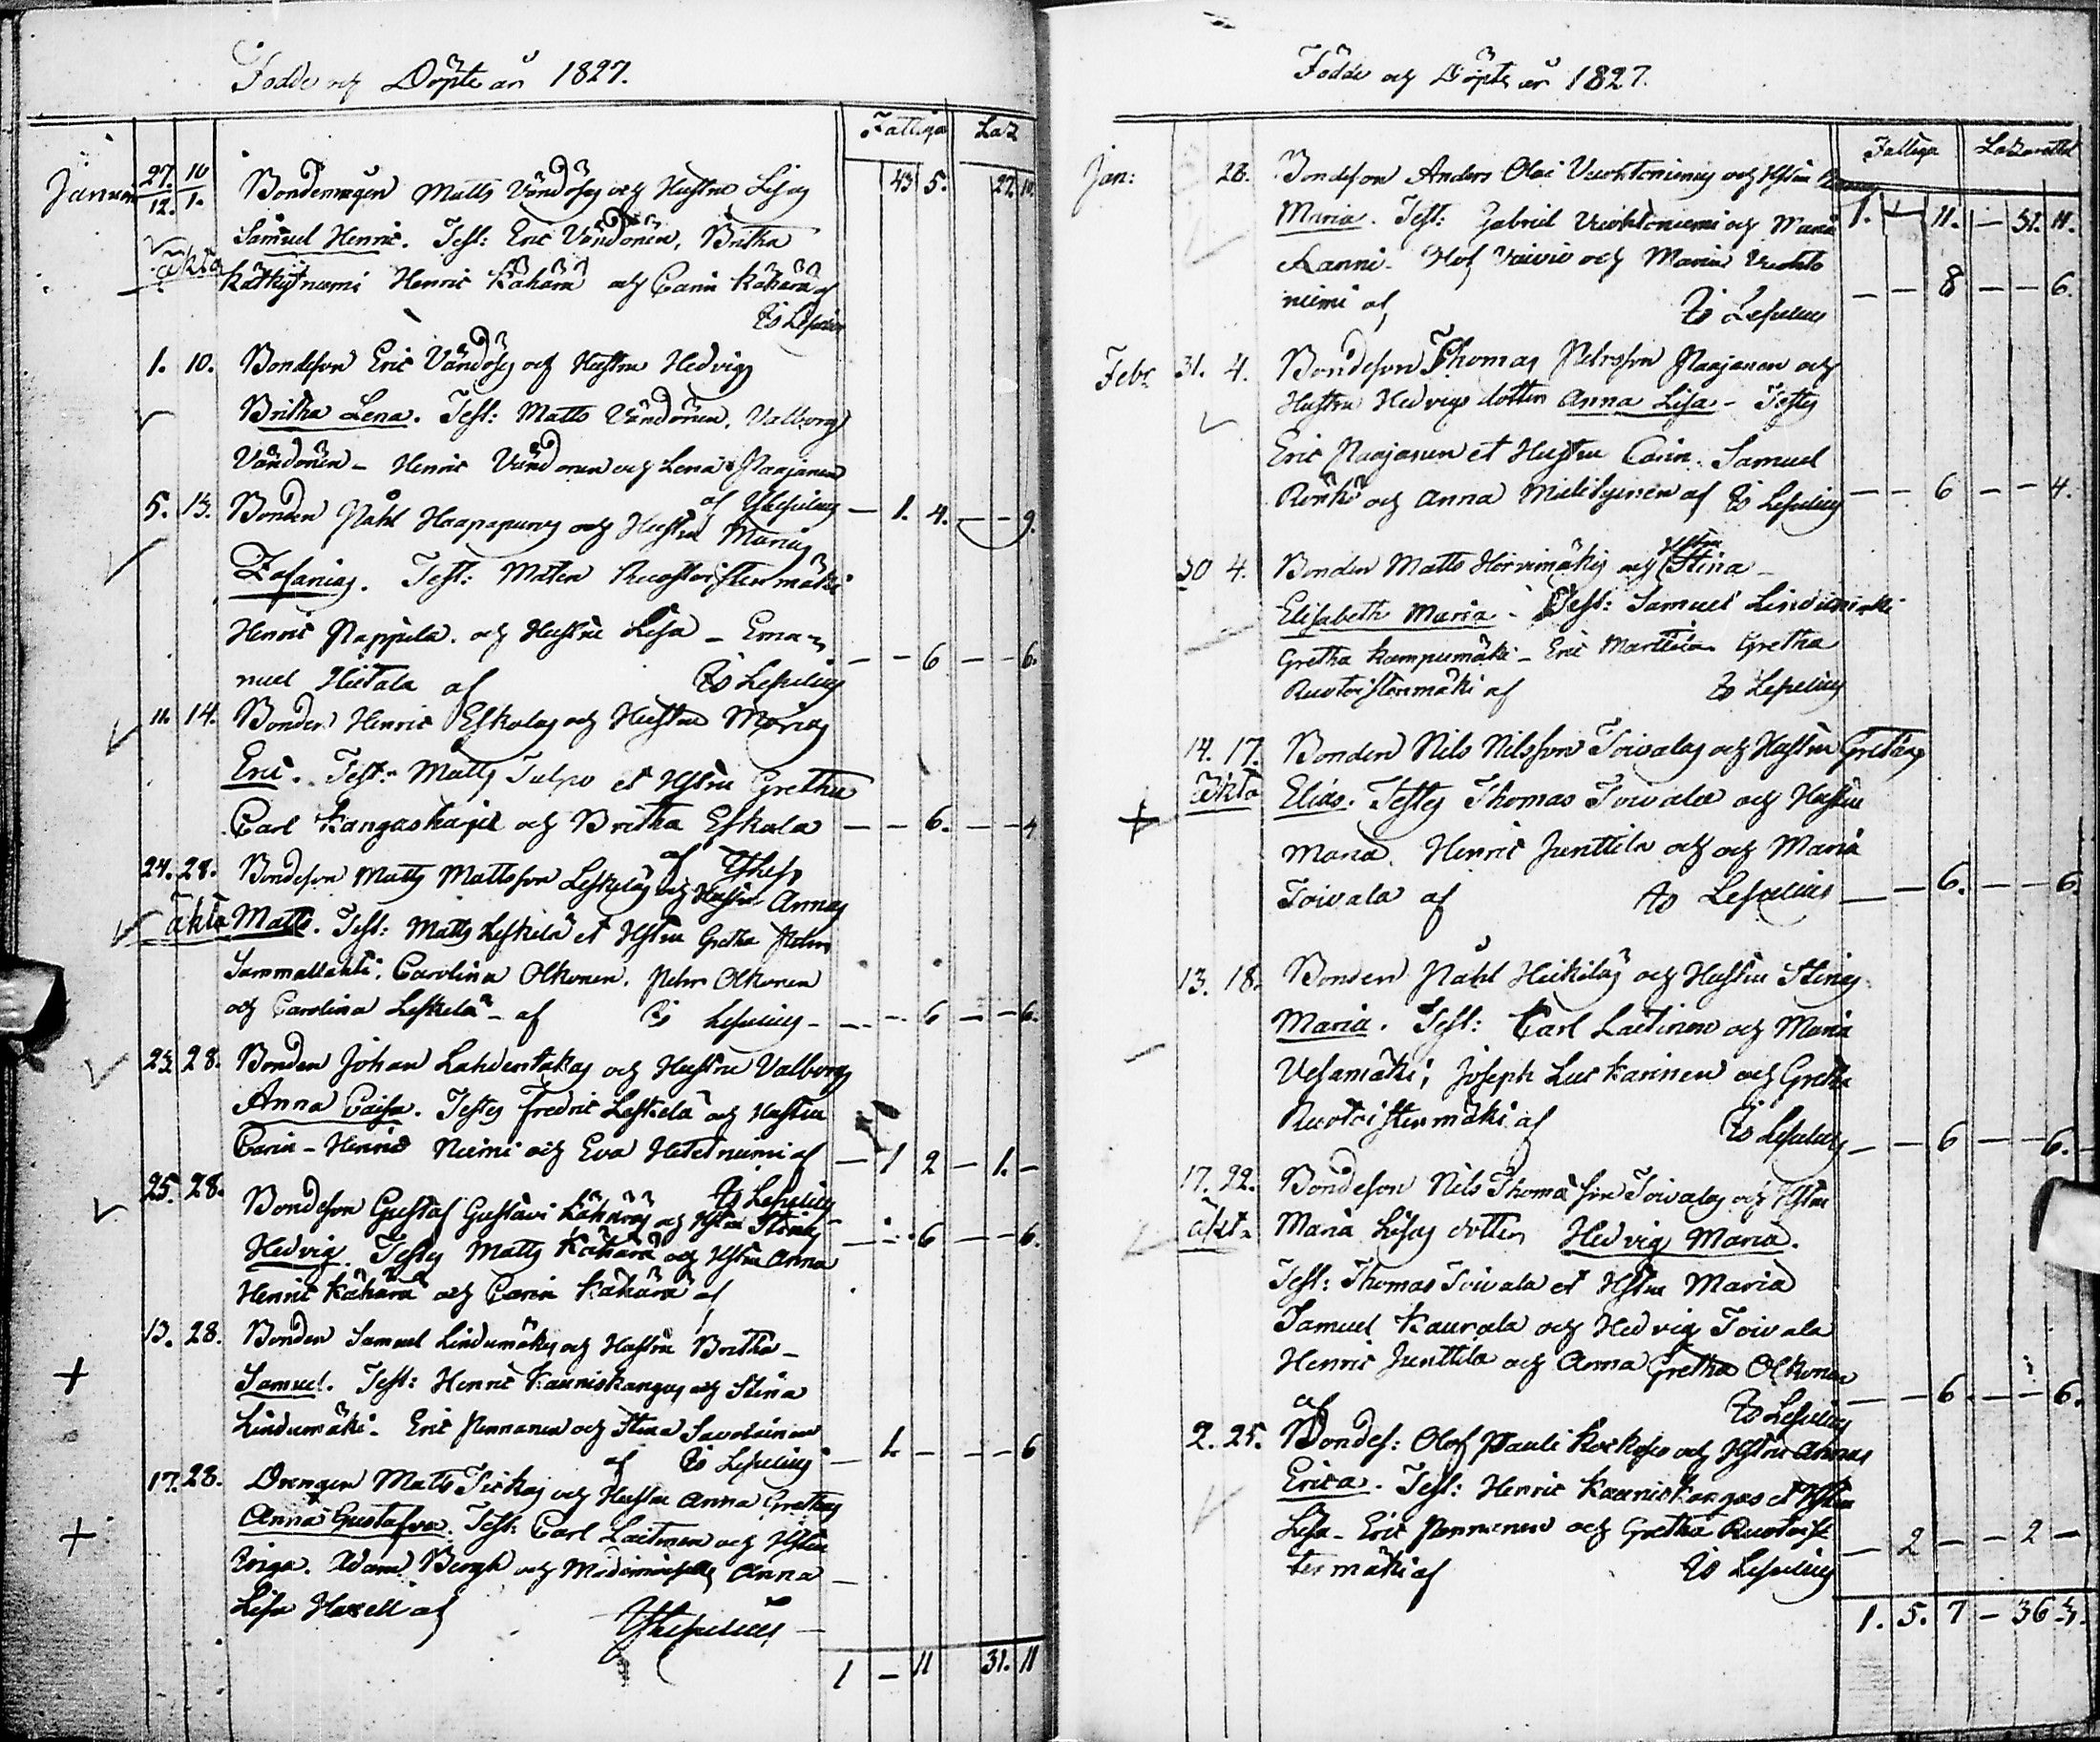 Födde och Döpte år 1827.
Fattiga Laz
43 5. 27. 10.
Januari 27. 10 Bondemågen Matts Vändöses och Hustru Lisas
12. 1. Samuel Henric. Test: Eric Vändönen, Britha
äkta Kätkytniemi Henric Kähärä och Carin Kähärä af
Es Lespelius
1. 10. Bondeson Eric Vändöses och Hustru Hedvigs
Britha Lena. Test: Matts Vändönen, Valborg
Vändönen - Henric Vändönen och Lena Paajanen
af Es Lespelius — 1. 4. — — 9.
5. 13. Bonden Påhl Haapapuros och Hustru Marias
Zefanias. Test: Ruotoistenmäki
Henric Pappila och Hustru Lisa - Ema-
nuel Hietala af Es Lespelius — — 6 — — 6.
11. 14. Bonden Henric Eskolas och Hustru Marias
Eric. Test: Matts Tulpo et Hstru Gretha
Carl Kangaskarje och Britha Eskola — — 6. — — 4
af EsLesp
24. 28. Bondeson Matts Mattsson Leskeläs och Hustru Annas
äkta Matts. Test: Matts Leskelä et Hstru Gretha Pehr
Sammallahti, Carolina Olkonen. Pehr Olkonen
och Carolina Leskelä - af Es Lespelius - — — 6 — — 6.
23. 28. Bonden Johan Lahdentakas och Hustru Valborgs
Anna Caisa. Testes Fredric Leskelä och Hustru
Carin - Henric Niemi och Eva Heteiniemi af — 1 2 — 1. —
Es Lespelius
25. 28. Bondeson Gustaf Gustavi Kähäräs och Hstru Stinas
Hedvig. Testes Matts Kähärä och Hstru Anna — — 6 — — 6.
Henric Kähärä och Carin Kähärä af
13. 28. Bonden Samuel Lindumäkis och Hustru Britha -
Samuel. Test: Henric Kauniskangas och Stina
Lindumäki. Eric Pennanen och Stina Savolainen
af Es Lespelius — 1. — — — 6
17. 28. Drengen Matts Tickas och Hustru Anna Grethas
Anna Gustafva. Test: Carl Laitinen och Hstru
Briga. Adam Bergh och Mademoiselle Anna —
Lisa Haxell af EsLespelius —
1 — 11 31. 11
Födde och Döpte år 1827.
Fattiga Lazarettet
Jan: 28. Bondeson Anders Olai Vuohtoniemis och Hstru
Maria. Test: Gabriel Vuohtoniemi och Maria 1. — 11. — 31. 11.
Kanni - Olof Vaivio och Maria Vuohto
niemi af Es Lespelius — — 8 — — 6.
Febr 31. 4. Bondeson Thomas Pehrsson Paajanen och
Hustru Hedvigs dotter Anna Lisa - Testes
Eric Paajanen et Hustru Carin. Samuel
Rönkö och Anna af Es Lespelius — — 6 — — 4.
30 4. Bonden Matts Hörnimäkis och Hstru Stina -
Elisabeth Maria - Test: Samuel Lindumäki
Gretha Kumpumäki - Eric Martikain Gretha
Ruotoistenmäki af Es Lespelius
14. 17. Bonden Nils Nilsson Toivalas och Hustru Gretas
äkta Elias. Testes Thomas Toivala och Hustru
Maria. Henric Junttila och och Maria
Toivala af Es Lespelius — — 6. — — 6.
13. 18. Bonden Påhl Heikiläs och Hustru Stinas
Maria. Test: Carl Laitinen och Maria
Vesamäki, Joseph Luskarinen och Gretha
Ruotoistenmäki af Es Lespelius — — 6 — — 6.
17. 22. Bondeson Nils Thomasson Toivalas och Hstru
äkta Maria Lisas dotter Hedvig Maria.
Test: Thomas Toivala et Hstru Maria
Samuel Kaurala och Hedvig Toivala
Henric Junttila och Anna Gretha Olkonen
af Es Lespelius — — 6. — — 6.
2. 25. Bondes: Olof Pauli Koskos och Hstru Annas
Erica. Test: Henric Kauniskangas et Hstru
Lisa - Eric Pennanen och Gretha Ruotois
tenmäki af Es Lespelius — 2 — — 2 —
1. 5. 7 — 36. 3.